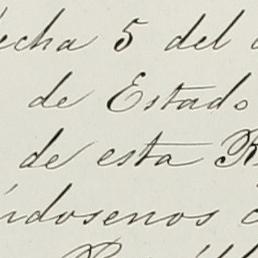 echa 5 del
de Estado
de esta R
ndosenos